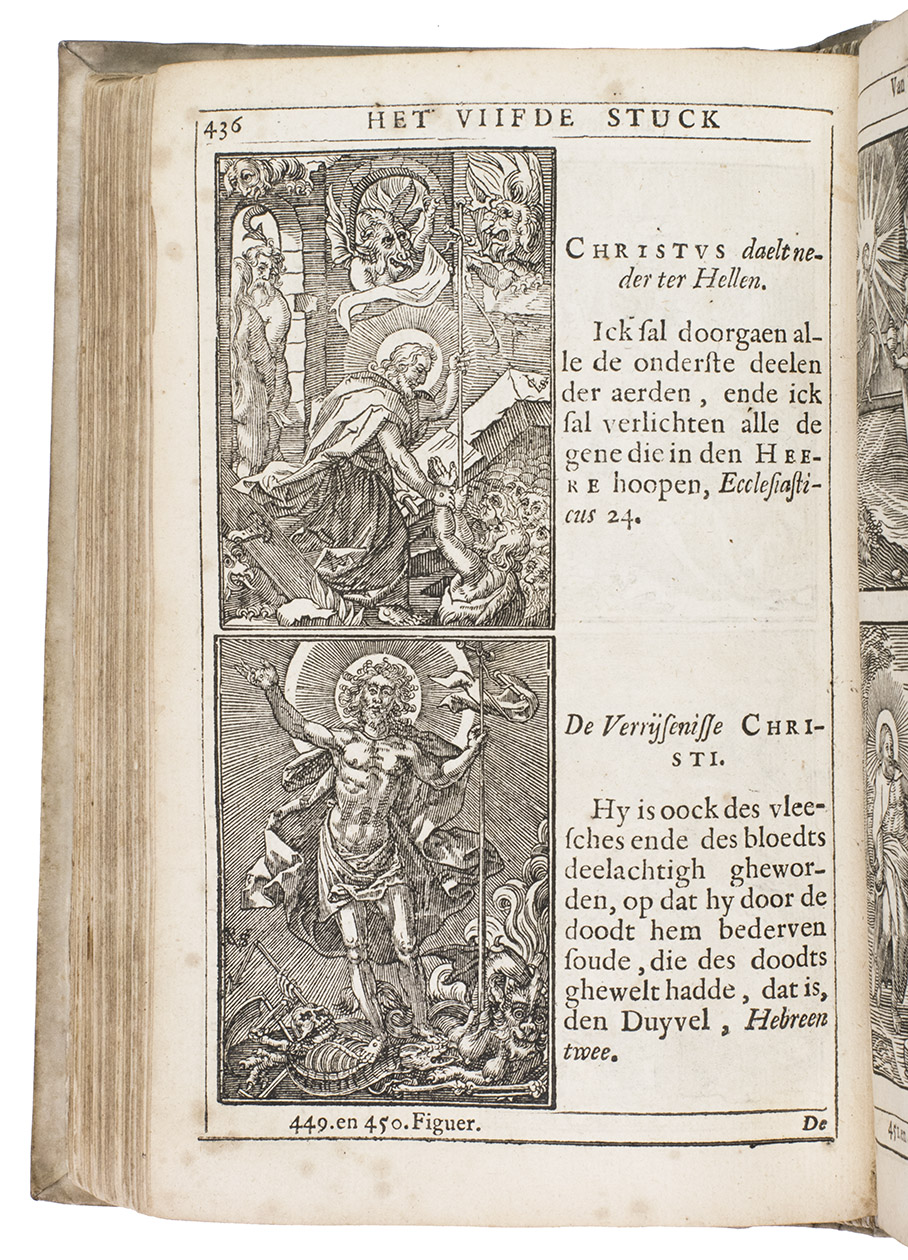 436
HET VIIFDE STUCK
CHRISTVS daelt ne-
der ter Hellen.
Ick ſal doorgaen al-
le de onderſte deelen
der aerden, ende ick
ſal verlichten álle de
gene die in den HEE-
RE hoopen, Eccleſiaſti-
cus 24.
De Verrijſeniſſe CHRI-
STI.
Hy is oock des vlee-
ſches ende des bloedts
deelachtigh ghewor-
den, op dat hy door de
doodt hem bederven
ſoude, die des doodts
ghewelt hadde, dat is,
den Duyvel, Hebreen
twee.
449. en 450. Figuer.
De
Van